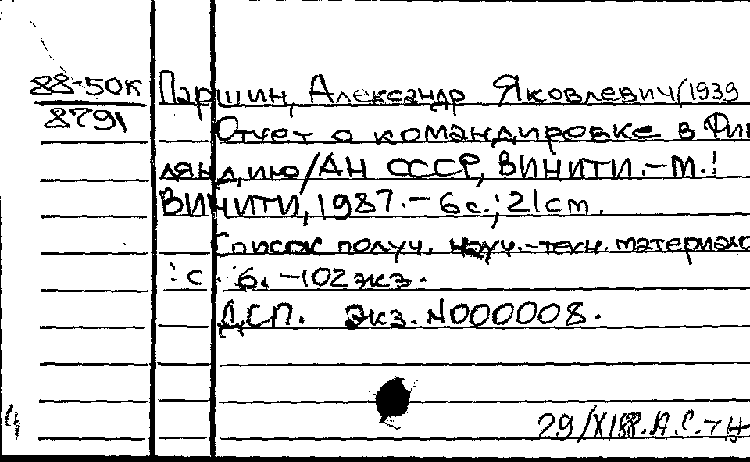 88-50к Паршин, Александр Яковлевич/1939
8791 Отчет о командировке в Фин
ляндию/АН СССР, ВИНИТИ.-М.:
ВИНИТИ, 1987.-6с.; 21cm.
Список получ. науч.-техн. материало
: с. 6. -102экз.
ДСП. Экз. N000008.
29/XI88.